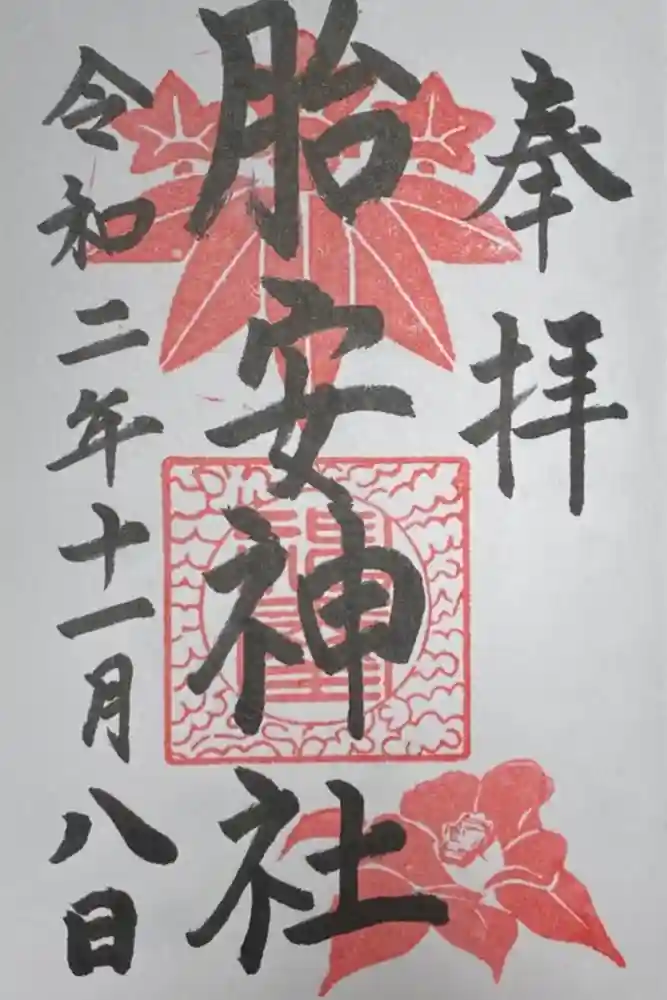 奉拝
胎安神社
令和二年十一月八日